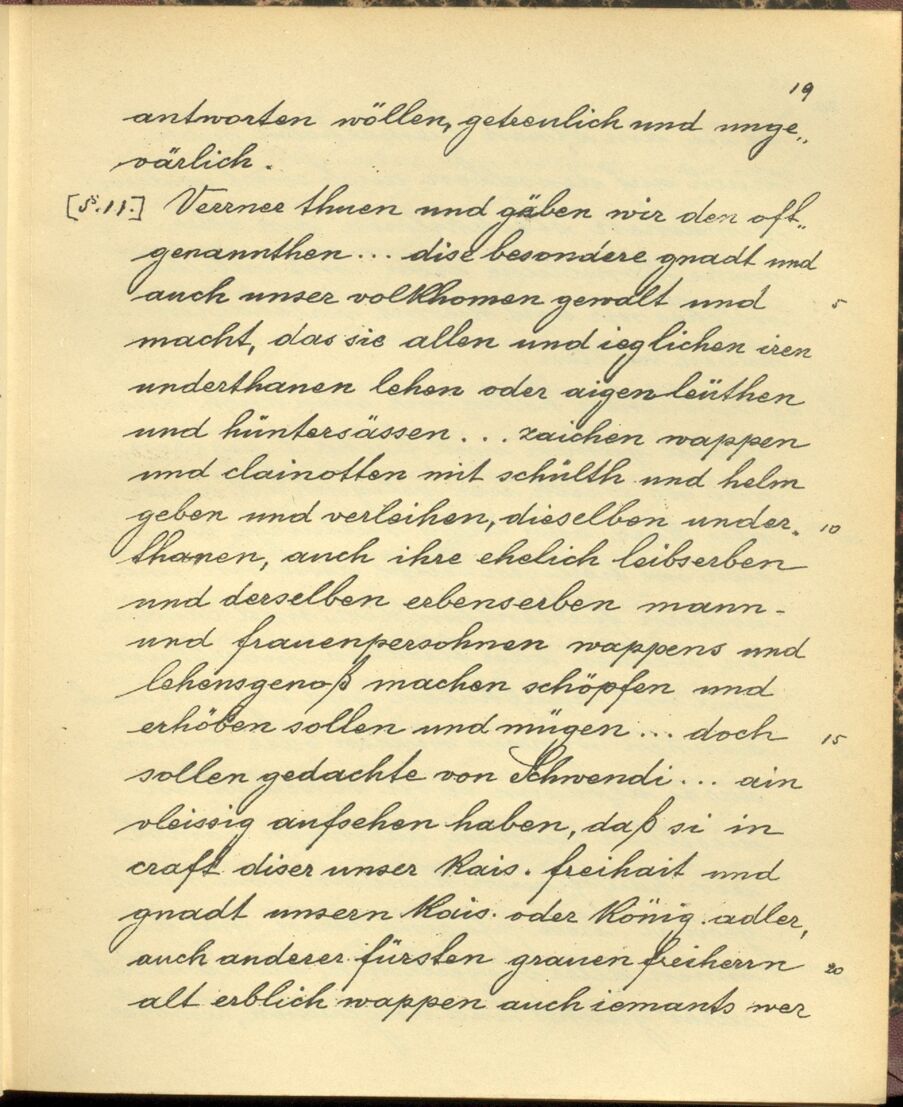 19
antworten wöllen, getreulich und unge„
värlich.
[S. 11.] Verrner thuen und gäben wir den oft„
genannthen... dise besondere gnadt und
auch unser volkhomen gewalt und
5
macht, das sie allen und ieglichen iren
underthanen lehen oder aigen leüthen
und hüntersässen... zaichen wappen
und clainotten mit schülth und helm
geben und verleihen, dieselben under„
10
thanen, auch ihre ehelich leibserben
und derselben erbenserben mann-
und frauenpersohnen wappens und
lehensgenoß machen schöpfen und
erhöben sollen und mügen... doch
15
sollen gedachte von Schwendi... ain
vleissig aufsehen haben, daß si in
craft diser unser Kais. freihait und
gnadt unsern Kais. oder König. adler,
auch anderer fürsten graven freiherrn
20
alt erblich wappen auch iemants wer